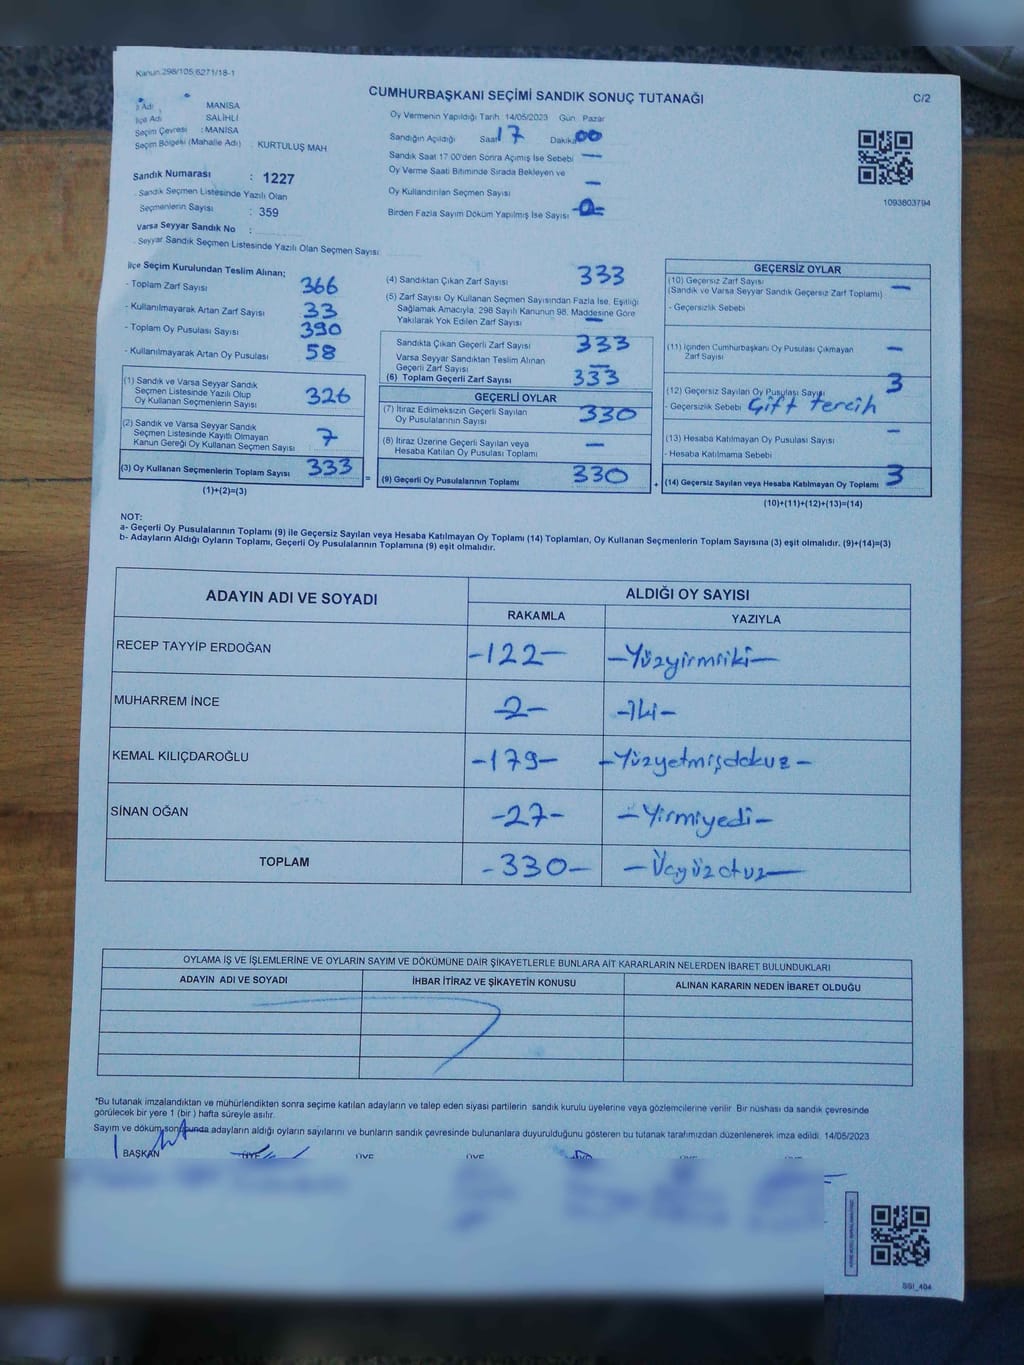 Kanun.298/105,6271/18-1
CUMHURBAŞKANI SEÇİMİ SANDIK SONUÇ TUTANAĞI
C/2
İl Adı MANİSA
İlçe Adı SALİHLİ
Seçim Çevresi : MANİSA
Seçim Bölgesi (Mahalle Adı) . KURTULUŞ MAH
Sandık Numarası : 1227
. Sandık Seçmen Listesinde Yazılı Olan
Seçmenlerin Sayısı : 359
Varsa Seyyar Sandık No :
. Seyyar Sandık Seçmen Listesinde Yazılı Olan Seçmen Sayısı
Oy Vermenin Yapıldığı Tarih. 14/05/2023 Gün. Pazar
Sandığın Açıldığı Saat 17 Dakika 00
Sandık Saat 17.00'den Sonra Açımış İse Sebebi —
Oy Verme Saati Bitiminde Sırada Bekleyen ve
Oy Kullandırılan Seçmen Sayısı —
Birden Fazla Sayım Döküm Yapılmış İse Sayısı -0-
1093803794
İlçe Seçim Kurulundan Teslim Alınan;
- Toplam Zarf Sayısı 366
- Kullanılmayarak Artan Zarf Sayısı 33
- Toplam Oy Pusulası Sayısı 390
- Kullanılmayarak Artan Oy Pusulası 58
(1) Sandık ve Varsa Seyyar Sandık
Seçmen Listesinde Yazılı Olup
Oy Kullanan Seçmenlerin Sayısı 326
(2) Sandık ve Varsa Seyyar Sandık
Seçmen Listesinde Kayıtlı Olmayan
Kanun Gereği Oy Kullanan Seçmen Sayısı 7
(3) Oy Kullanan Seçmenlerin Toplam Sayısı 333
(1)+(2)=(3)
(4) Sandıktan Çıkan Zarf Sayısı 333
(5) Zarf Sayısı Oy Kullanan Seçmen Sayısından Fazla İse, Eşitliği
Sağlamak Amacıyla, 298 Sayılı Kanunun 98. Maddesine Göre
Yakılarak Yok Edilen Zarf Sayısı —
Sandıkta Çıkan Geçerli Zarf Sayısı 333
Varsa Seyyar Sandıktan Teslim Alınan
Geçerli Zarf Sayısı —
(6) Toplam Geçerli Zarf Sayısı 333
GEÇERLİ OYLAR
(7) İtiraz Edilmeksizin Geçerli Sayılan
Oy Pusulalarının Sayısı 330
(8) İtiraz Üzerine Geçerli Sayılan veya
Hesaba Katılan Oy Pusulası Toplamı —
= (9) Geçerli Oy Pusulalarının Toplamı 330 +
GEÇERSİZ OYLAR
(10) Geçersiz Zarf Sayısı
(Sandık ve Varsa Seyyar Sandık Geçersiz Zarf Toplamı) —
- Geçersizlik Sebebi
(11) İçinden Cumhurbaşkanı Oy Pusulası Çıkmayan
Zarf Sayısı —
(12) Geçersiz Sayılan Oy Pusulası Sayısı 3
- Geçersizlik Sebebi Çift tercih
(13) Hesaba Katılmayan Oy Pusulası Sayısı —
- Hesaba Katılmama Sebebi
(14) Geçersiz Sayılan veya Hesaba Katılmayan Oy Toplamı 3
(10)+(11)+(12)+(13)=(14)
NOT:
a- Geçerli Oy Pusulalarının Toplamı (9) ile Geçersiz Sayılan veya Hesaba Katılmayan Oy Toplamı (14) Toplamları, Oy Kullanan Seçmenlerin Toplam Sayısına (3) eşit olmalıdır. (9)+(14)=(3)
b- Adayların Aldığı Oyların Toplamı, Geçerli Oy Pusulalarının Toplamına (9) eşit olmalıdır.
ADAYIN ADI VE SOYADI ALDIĞI OY SAYISI
RAKAMLA YAZIYLA
RECEP TAYYİP ERDOĞAN -122- -Yüzyirmiiki-
MUHARREM İNCE -2- -İki-
KEMAL KILIÇDAROĞLU -179- -Yüzyetmişdokuz-
SİNAN OĞAN -27- -Yirmiyedi-
TOPLAM -330- -Üçyüzotuz-
OYLAMA İŞ VE İŞLEMLERİNE VE OYLARIN SAYIM VE DÖKÜMÜNE DAİR ŞİKAYETLERLE BUNLARA AİT KARARLARIN NELERDEN İBARET BULUNDUKLARI
ADAYIN ADI VE SOYADI İHBAR İTİRAZ VE ŞİKAYETİN KONUSU ALINAN KARARIN NEDEN İBARET OLDUĞU
*Bu tutanak imzalandıktan ve mühürlendikten sonra seçime katılan adayların ve talep eden siyasi partilerin sandık kurulu üyelerine veya gözlemcilerine verilir. Bir nüshası da sandık çevresinde
görülecek bir yere 1 (bir) hafta süreyle asılır.
Sayım ve döküm sonucunda adayların aldığı oyların sayılarını ve bunların sandık çevresinde bulunanlara duyurulduğunu gösteren bu tutanak tarafımızdan düzenlenerek imza edildi. 14/05/2023
BAŞKAN ÜYE ÜYE ÜYE
SSI_404